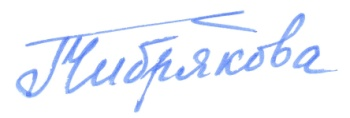 Чибрякова